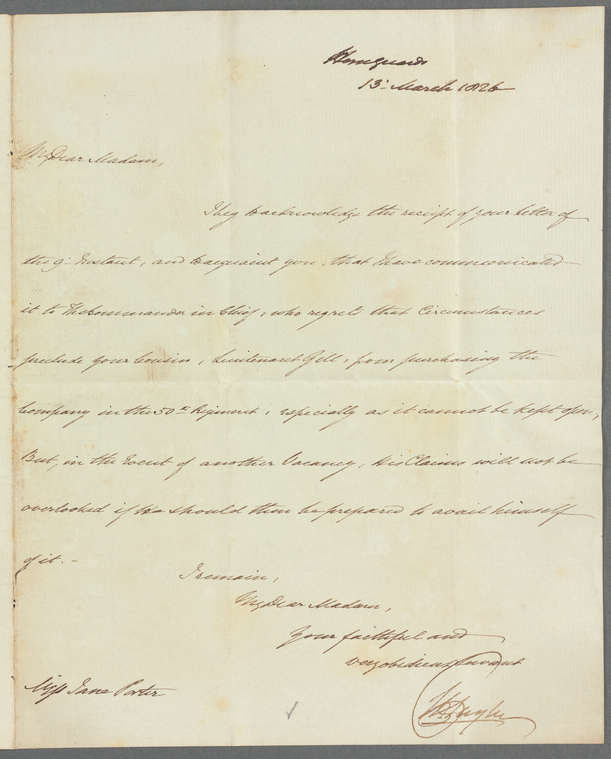 Horseguards
13: March 1826
My Dear Madam,
I beg to acknowledge the receipt of your letter of
the 9: Instant, and to acquaint you, that I have communicated
it to The Commander in Chief, who regrets that Circumstances
preclude your Cousin, Lieutenant Gill, from purchasing the
Company in the 50th Regiment, especially as it cannot be kept open,
But, in the Event of another Vacancy, His Claims will not be
overlooked if He should then be prepared to avail himself
of it. -
I remain,
My Dear Madam,
Your faithful and
very obedient Servant
Miss Jane Porter